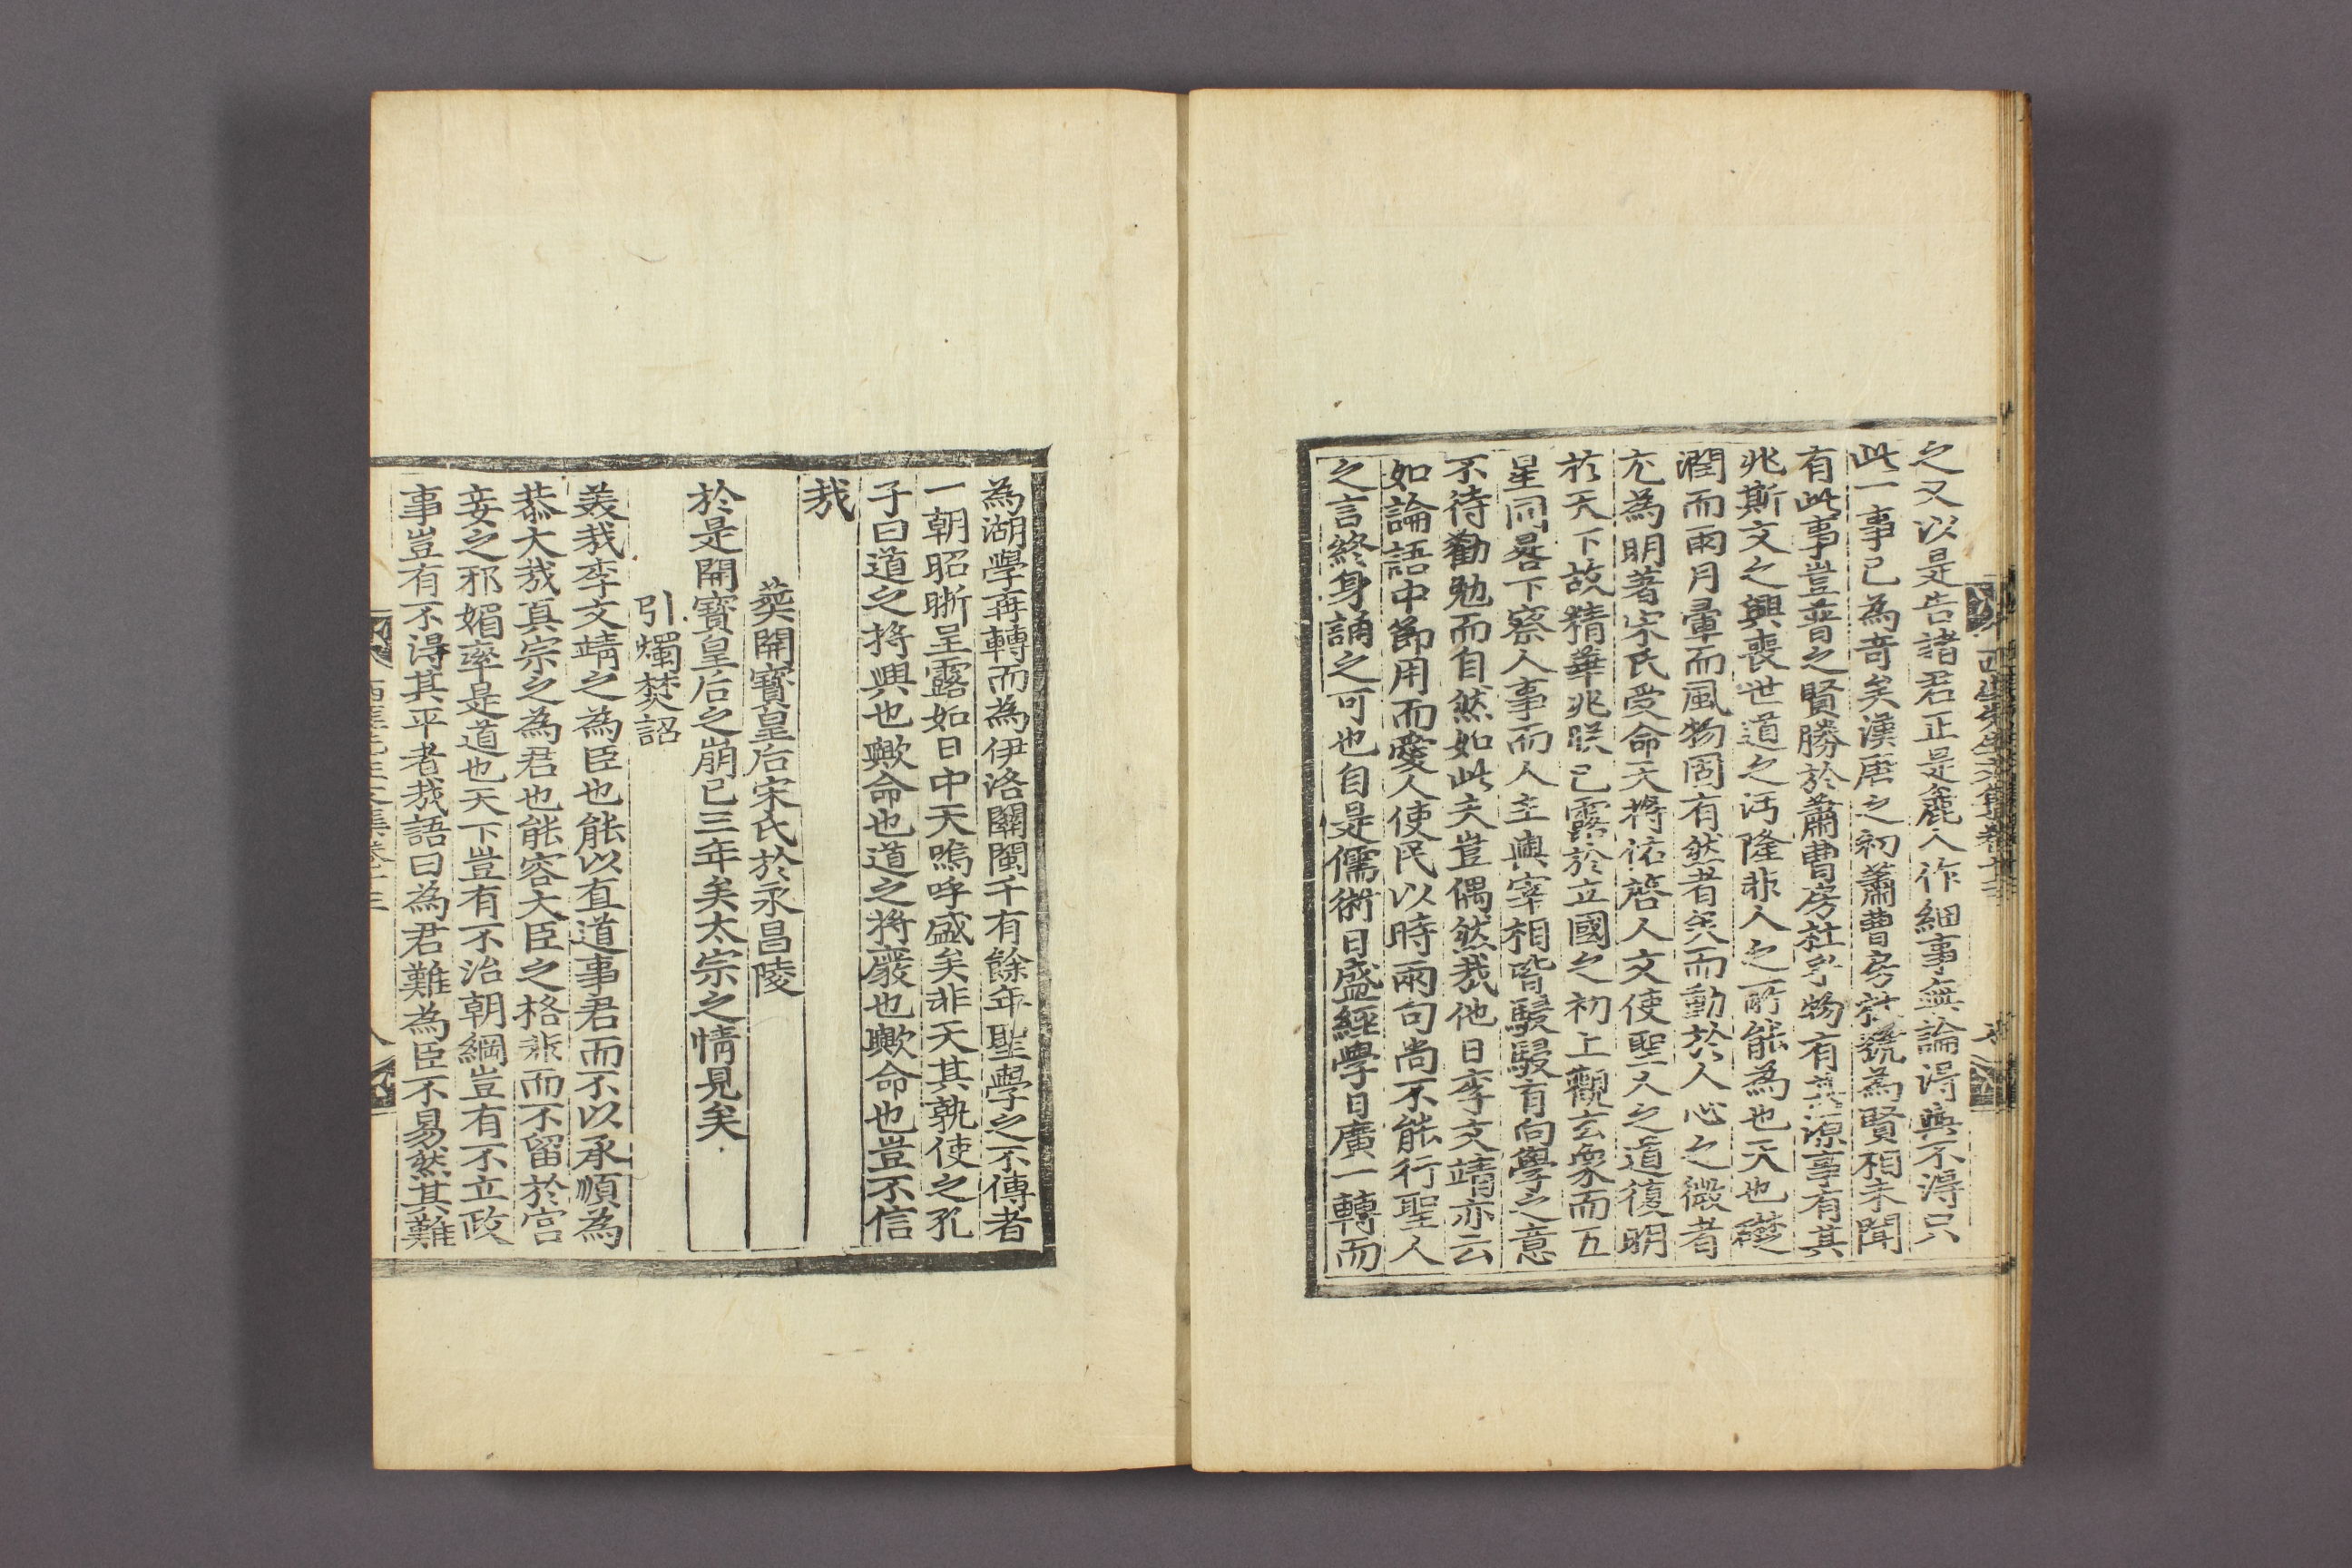 之又以是告諸君正是麁人作細事無論得與不得只
此一事已為奇矣漢唐之初蕭曹房杜號為賢相未聞
有此事豈普之賢勝於蕭曹房杜乎物有其源事有其
兆斯文之興喪世道之汚隆非人之所能為也天也礎
潤而雨月暈而風物固有然者矣而動於人心之微者
尤為明著宋氏受命天將佑啓人文使聖人之道復明
於天下故精華兆眹已露於立國之初上觀玄象而五
星同晷下察人事而人主與宰相皆駸駸有向學之意
不待勸勉而自然如此夫豈偶然哉他日李文靖亦云
如論語中節用而愛人使民以時兩句尚不能行聖人
之言終身誦之可也自是儒術日盛經學日廣一轉而
為湖學再轉而為伊洛關閩千有餘年聖學之不傳者
一朝昭晣呈露如日中天嗚呼盛矣非天其孰使之孔
子曰道之將興也歟命也道之將廢也歟命也豈不信
哉
葬開寶皇后宋氏於永昌陵
於是開寶皇后之崩已三年矣太宗之情見矣
引燭焚詔
美哉李文靖之為臣也能以直道事君而不以承順為
恭大哉真宗之為君也能容大臣之格非而不留於宮
妾之邪媚率是道也天下豈有不治朝綱豈有不立政
事豈有不得其平者哉語曰為君難為臣不易然其難